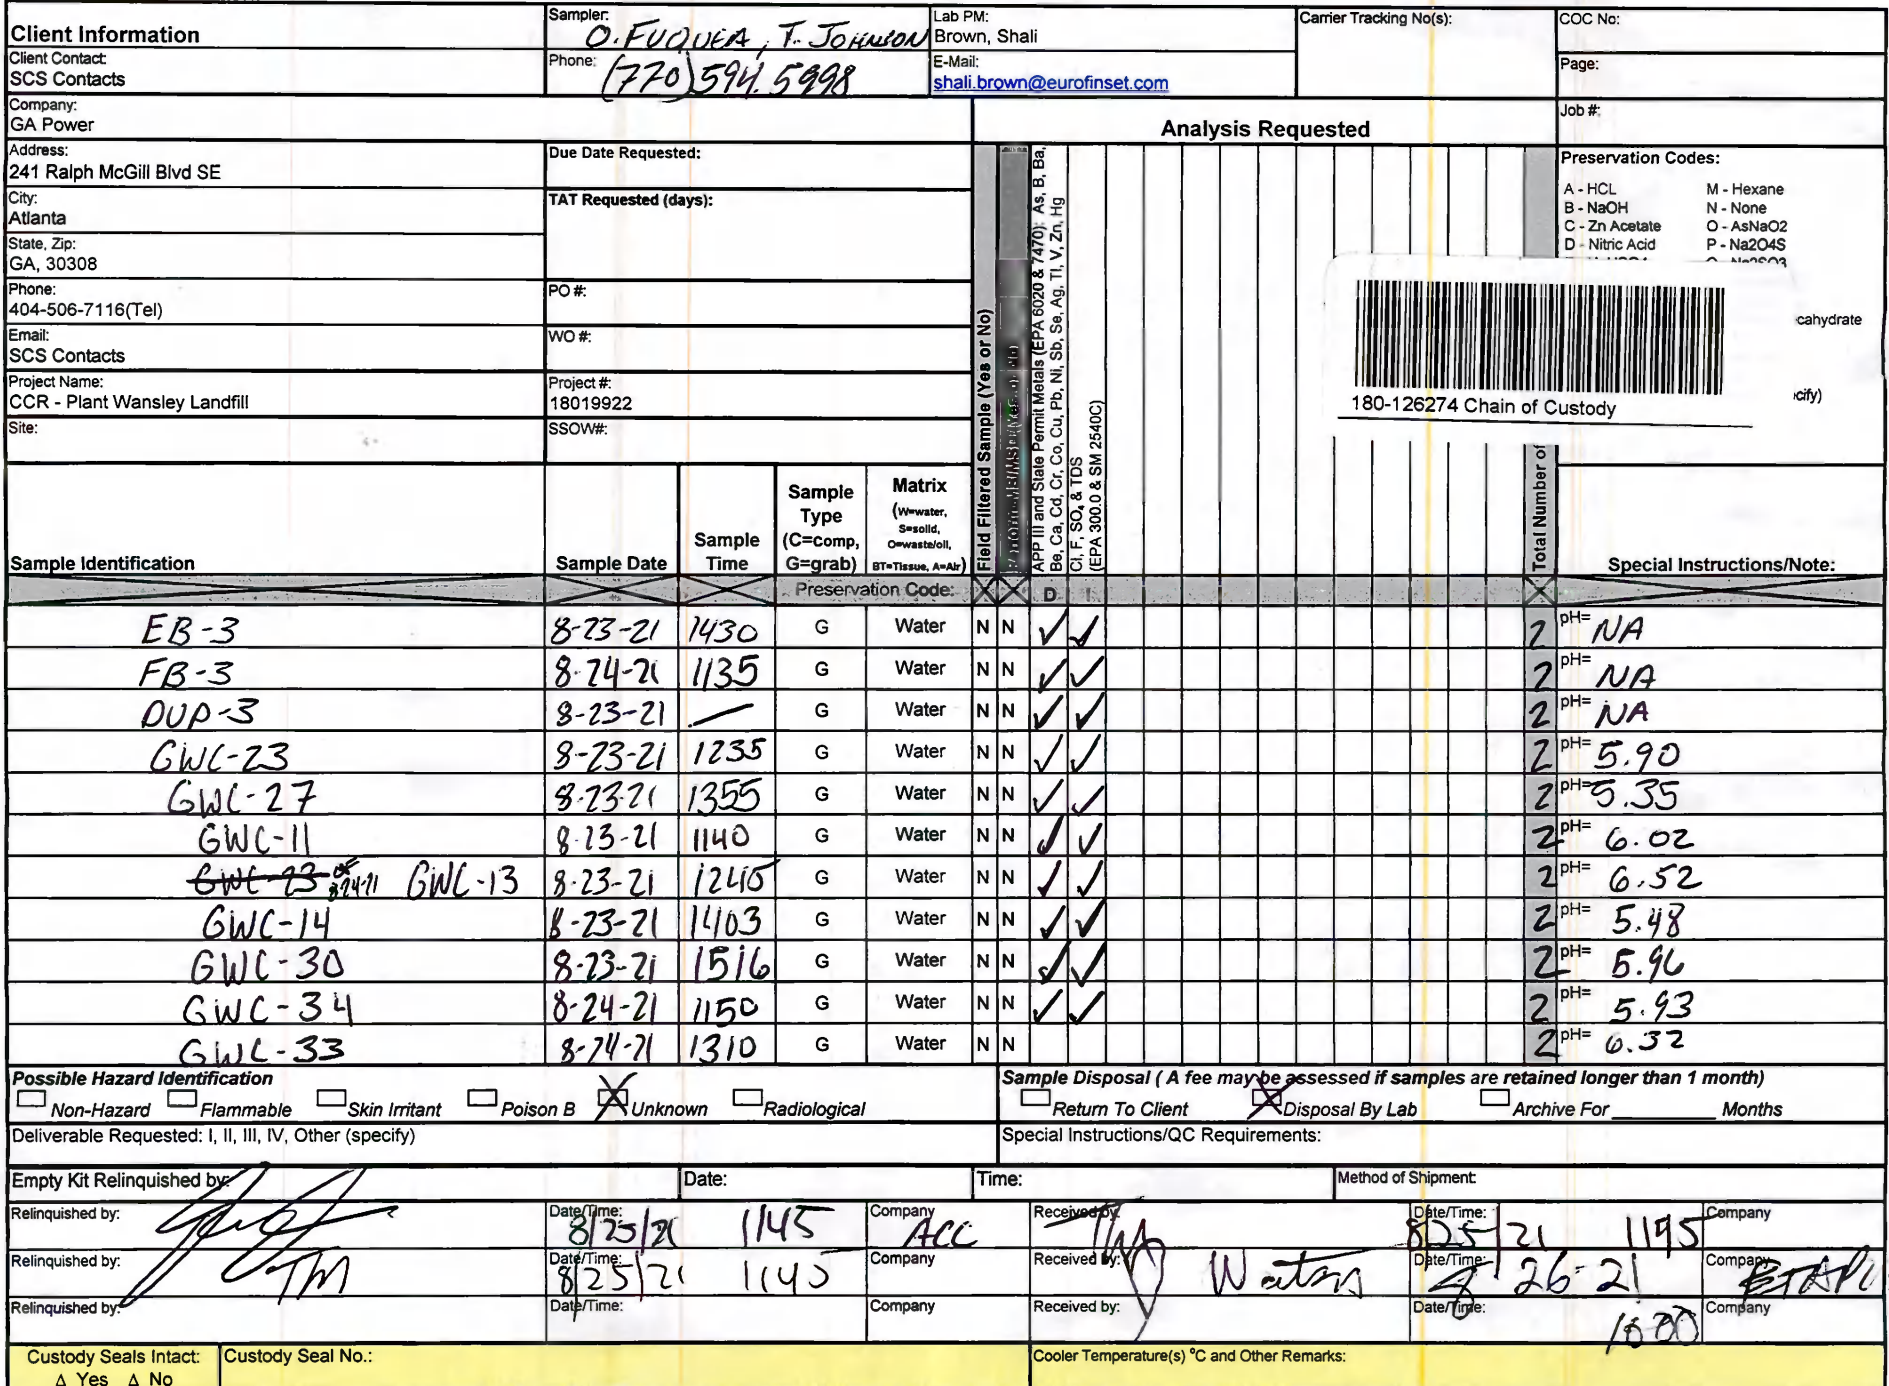 Client Information
Sampler: O. FUQUEA, T. JOHNSON
Lab PM: Brown, Shali
Carrier Tracking No(s):
COC No:
Client Contact: SCS Contacts
Phone: (770) 594.5998
E-Mail: shali.brown@eurofinset.com
Page:
Company: GA Power
Analysis Requested
Job #:
Address: 241 Ralph McGill Blvd SE
Due Date Requested:
City: Atlanta
TAT Requested (days):
State, Zip: GA, 30308
Phone: 404-506-7116(Tel)
PO #:
Email: SCS Contacts
WO #:
Project Name: CCR - Plant Wansley Landfill
Project #: 18019922
Site:
SSOW#:
Field Filtered Sample (Yes or No)
APP III and State Permit Metals (EPA 6020 & 7470): As, B, Ba,
Be, Ca, Cd, Cr, Co, Cu, Pb, Ni, Sb, Se, Ag, Tl, V, Zn, Hg
Cl, F, SO₄ & TDS
(EPA 300.0 & SM 2540C)
Total Number of
Preservation Codes:
A - HCL M - Hexane
B - NaOH N - None
C - Zn Acetate O - AsNaO2
D - Nitric Acid P - Na2O4S
Na2SO3
cahydrate
cify)
180-126274 Chain of Custody
Sample Identification
Sample Date
Sample Time
Sample Type (C=comp, G=grab)
Matrix (W=water, S=solid, O=waste/oil, BT=Tissue, A=Air)
Special Instructions/Note:
Preservation Code: X X D I X
EB-3 8-23-21 1430 G Water N N ✓ ✓ 2 pH= NA
FB-3 8-24-21 1135 G Water N N ✓ ✓ 2 pH= NA
DUP-3 8-23-21 — G Water N N ✓ ✓ 2 pH= NA
GWC-23 8-23-21 1235 G Water N N ✓ ✓ 2 pH= 5.90
GWC-27 8-23-21 1355 G Water N N ✓ ✓ 2 pH= 5.35
GWC-11 8-23-21 1140 G Water N N ✓ ✓ 2 pH= 6.02
GWC-23 OF 8-24-21 GWC-13 8-23-21 1245 G Water N N ✓ ✓ 2 pH= 6.52
GWC-14 8-23-21 1403 G Water N N ✓ ✓ 2 pH= 5.48
GWC-30 8-23-21 1516 G Water N N ✓ ✓ 2 pH= 5.96
GWC-34 8-24-21 1150 G Water N N ✓ ✓ 2 pH= 5.93
GWC-33 8-24-21 1310 G Water N N 2 pH= 6.32
Possible Hazard Identification
Non-Hazard Flammable Skin Irritant Poison B X Unknown Radiological
Sample Disposal ( A fee may be assessed if samples are retained longer than 1 month)
Return To Client X Disposal By Lab Archive For Months
Deliverable Requested: I, II, III, IV, Other (specify)
Special Instructions/QC Requirements:
Empty Kit Relinquished by: Date: Time: Method of Shipment:
Relinquished by: Date/Time: 8/25/21 1145 Company ACC Received by: Date/Time: 8/25/21 1145 Company
Relinquished by: TM Date/Time: 8/25/21 1145 Company Received by: Watson Date/Time: 8-26-21 Company
Relinquished by: Date/Time: Company Received by: Date/Time: Company
Custody Seals Intact:
Δ Yes Δ No
Custody Seal No.:
Cooler Temperature(s) °C and Other Remarks: